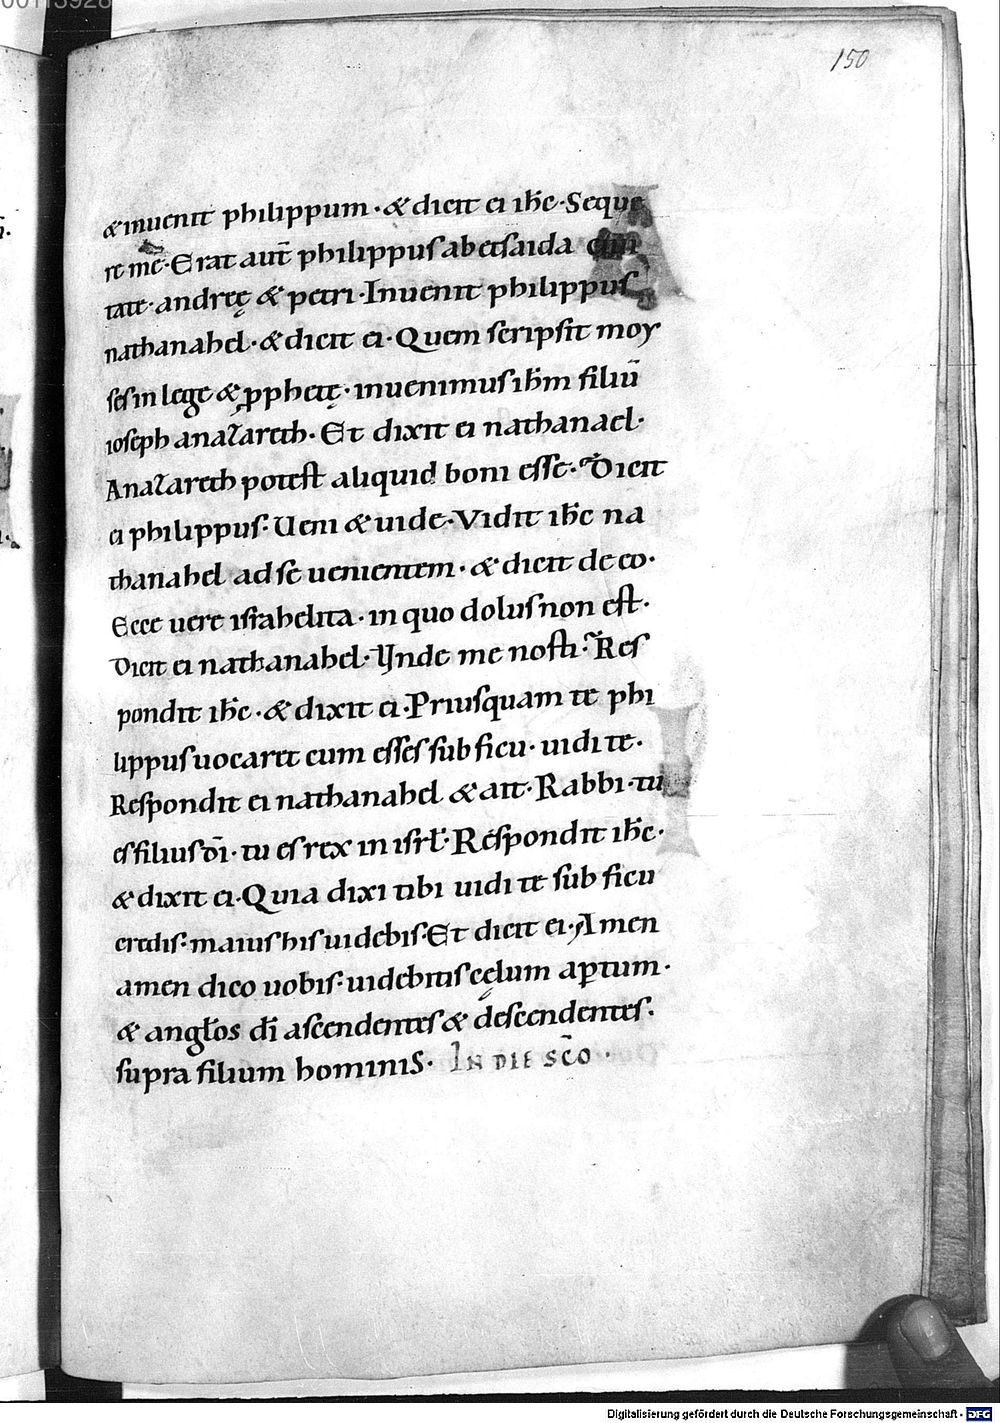 00113928
150
& inuenit philippum · & dicit ei ihc̄ · Seque
re me · Erat aut̄ philippus a betsaida ciui
tate · andreę & petri · Inuenit philippus
nathanahel · & dicit ei · Quem scripsit moy
ses in lege & ꝓphetę · inuenimus ihm̄ filiū
ioseph a nazareth · Et dixit ei nathanael ·
A nazareth potest aliquid boni esse · Dicit
ei philippus · Ueni & uide · Vidit ihc̄ na
thanahel ad se uenientem · & dicit de eo ·
Ecce uere israhelita · in quo dolus non est ·
Dicit ei nathanahel · Unde me nosti · Res
pondit ihc̄ · & dixit ei · Priusquam te phi
lippus uocaret cum esses sub ficu · uidi te ·
Respondit ei nathanahel & ait · Rabbi · tu
es filius dī · tu es rex in isrł · Respondit ihc̄ ·
& dixit ei · Quia dixi tibi uidi te sub ficu
credis · maius his uidebis · Et dicit ei · Amen
amen dico uobis · uidebitis cęlum aꝑtum ·
& angłos dī ascendentes & descendentes ·
supra filium hominis · IN DIE SC̄O ·
Digitalisierung gefördert durch die Deutsche Forschungsgemeinschaft · DFG